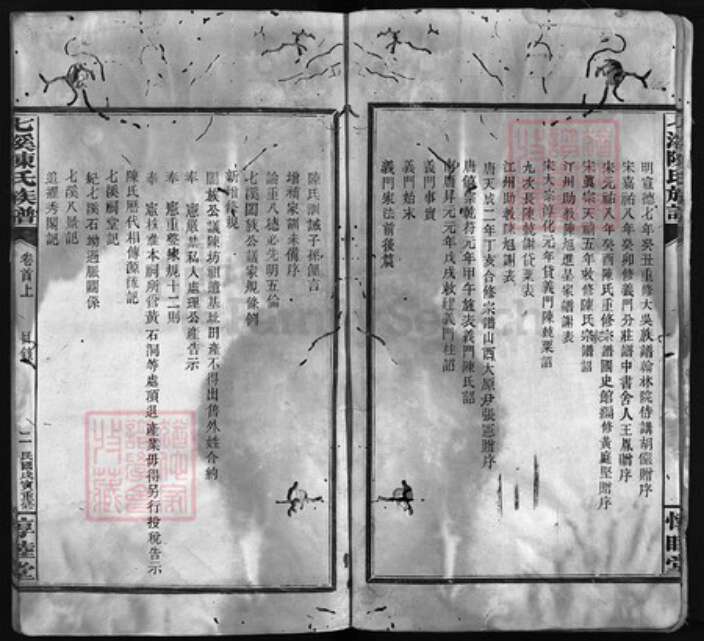 明宣德七年癸丑重修大吳族譜翰林院侍講胡儼贈序
宋嘉祐八年癸卯修義門分莊譜中書舍人王胤贈序
宋元祐八年癸酉陳氏重修宗譜國史館編修黃庭堅贈序
宋真宗天禧五年敕修陳氏宗譜詔
江州助教陳旭進呈家譜謝表
宋太宗淳化元年貸義門陳兢粟詔
九次長陳兢謝貸粟表
江州助教陳旭謝表
唐天成二年丁亥合修宗譜山西太原尹張憲贈序
唐僖宗乾符元年甲午旌表義門陳氏詔
南唐昇元元年戊戌敕建義門柱詔
義門事實
義門始末
義門家法前後篇
陳氏訓誡子孫便言
增補家訓朱傳序
論重八德必先明五倫
七溪闔族公議家規條例
新增後規
闔族公議陳坊祖遺基址田產不得出售外姓合約
奉 憲嚴禁私人處理公產告示
奉 憲重整家規十二則
奉 憲核准本祠所管黃石洞等處頂退產業毋得另行投稅告示
陳氏歷代相傳源流記
七溪祠堂記
紀七溪石坳過脈關係
七溪八景記
道裡秀閣記
七溪陳氏族譜
卷首上
目錄
二
民國戊寅重修
惇睦堂